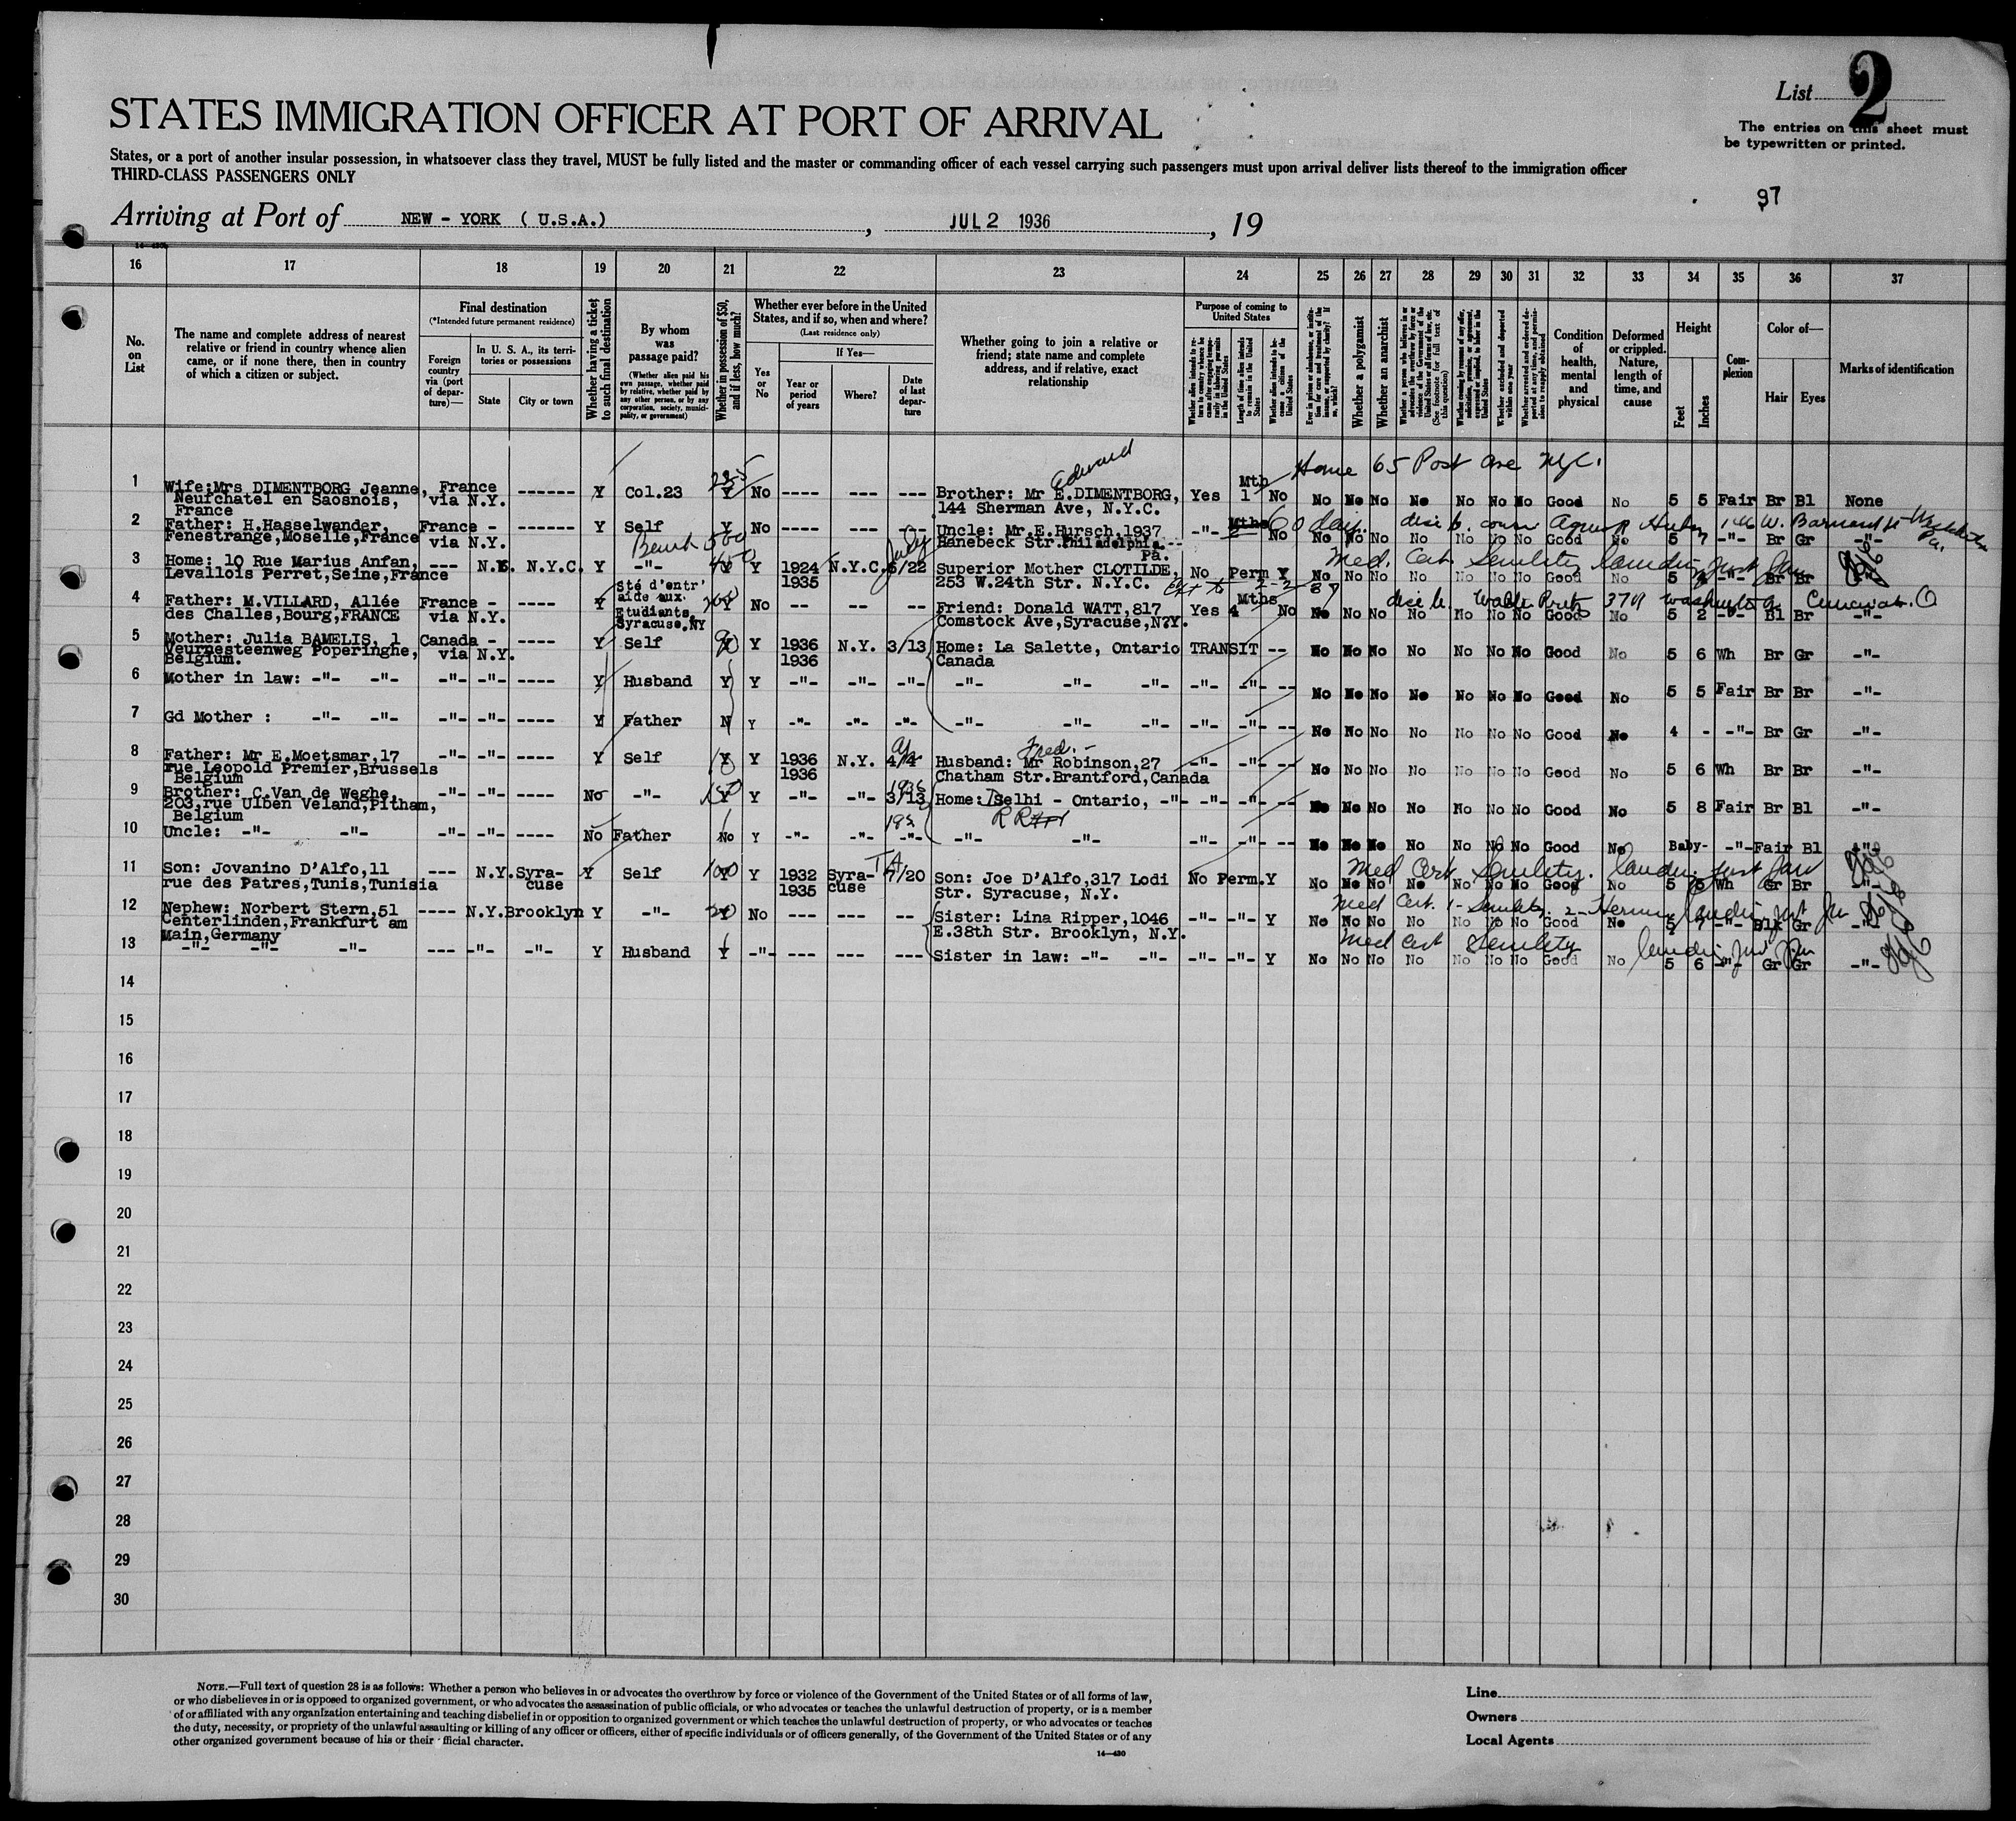 List 2
STATES IMMIGRATION OFFICER AT PORT OF ARRIVAL
The entries on this sheet must
be typewritten or printed.
States, or a port of another insular possession, in whatsoever class they travel, MUST be fully listed and the master or commanding officer of each vessel carrying such passengers must upon arrival deliver lists thereof to the immigration officer
THIRD-CLASS PASSENGERS ONLY
97
Arriving at Port of NEW - YORK ( U.S.A.) , JUL 2 1936 , 19
16 17 18 19 20 21 22 23 24 25 26 27 28 29 30 31 32 33 34 35 36 37
No. on List
The name and complete address of nearest relative or friend in country whence alien came, or if none there, then in country of which a citizen or subject.
Final destination
(*Intended future permanent residence)
Foreign country via (port of departure)—
In U. S. A., its territories or possessions
State
City or town
Whether having a ticket to such final destination
By whom was passage paid?
(Whether alien paid his own passage, whether paid by relative, whether paid by any other person, or by any corporation, society, municipality, or government)
Whether in possession of $50, and if less, how much?
Whether ever before in the United States, and if so, when and where?
(Last residence only)
Yes or No
If Yes—
Year or period of years
Where?
Date of last departure
Whether going to join a relative or friend; state name and complete address, and if relative, exact relationship
Purpose of coming to United States
Length of time alien intends to remain in the United States
Whether alien intends to become a citizen of the United States
Whether a polygamist
Whether an anarchist
Condition of health, mental and physical
Deformed or crippled. Nature, length of time, and cause
Height
Feet
Inches
Complexion
Color of—
Hair
Eyes
Marks of identification
Edward
Home 65 Post Ave NYC.
1 Wife:Mrs DIMENTBORG Jeanne, France ------ Y Col.23 Y No ---- --- --- Brother: Mr E.DIMENTBORG, Yes 1 Mth No No No No No No No No Good No 5 5 Fair Br Bl None
Neufchatel en Saosnois, via N.Y. 144 Sherman Ave, N.Y.C.
France
2 Father: H.Hasselwander, France - ------ Y Self Y No ---- --- -- Uncle: Mr.E.Hursch,1937 -"- No No No No No No No No Good No 5 7 -"- Br Gr -"-
Fenestrange,Moselle,France via N.Y. Hanebeck Str.Philadelphia Pa.
60 days.
3 Home: 10 Rue Marius Anfan, --- N.Y. N.Y.C. Y -"- Y Y 1924 N.Y.C. 6/22 Superior Mother CLOTILDE, No Perm Y No No No No No No No Good No 5 -"- Br Br
Levallois Perret,Seine,France 1935 253 W.24th Str. N.Y.C.
Med. Cert. Senility
4 Father: M.VILLARD, Allée France - ---- Y Sté d'entr' aide aux. Etudiants Syracuse,NY Y No -- -- -- Friend: Donald WATT,817 Yes 4 Mths No No No No No No No No Good No 5 2 -"- Bl Br -"-
des Challes,Bourg,FRANCE via N.Y. Comstock Ave,Syracuse,N.Y.
5 Mother: Julia BAMELIS, 1 Canada - ---- Y Self Y Y 1936 N.Y. 3/13 Home: La Salette, Ontario TRANSIT -- No No No No No No No Good No 5 6 Wh Br Gr -"-
Veurnesteenweg Poperinghe, via N.Y. 1936 Canada
Belgium.
6 Mother in law: -"- -"- -"- -"- ---- Y Husband Y Y -"- -"- -"- -"- -"- -"- -"- -"- -- No No No No No No No Good No 5 5 Fair Br Br -"-
7 Gd Mother : -"- -"- -"- -"- ---- Y Father N Y -"- -"- -"- -"- -"- -"- -"- -"- -- No No No No No No No Good No 4 - -"- Br Gr -"-
Fred.
8 Father: Mr E.Moetsmar,17 -"- -"- ---- Y Self Y Y 1936 N.Y. 4/4 Husband: Mr Robinson,27 -"- -"- -- No No No No No No No Good No 5 6 Wh Br Br -"-
rue Leopold Premier,Brussels 1936 Chatham Str.Brantford,Canada
Belgium
9 Brother: C.Van de Weghe, -"- -"- ---- No -"- Y Y -"- -"- 3/13 Home: Delhi - Ontario, -"- -"- -"- -- No No No No No No No Good No 5 8 Fair Br Bl -"-
203,rue Ulben Veland,Pitham,
Belgium
10 Uncle: -"- -"- -"- -"- ---- No Father No Y -"- -"- -"- -"- -"- -"- -"- -- No No No No No No No Good No Baby- -"- Fair Bl -"-
11 Son: Jovanino D'Alfo,11 --- N.Y. Syracuse Y Self Y Y 1932 Syracuse 7/20 Son: Joe D'Alfo,317 Lodi No Perm. Y No No No No No No No Good No 5 5 Wh Gr Br -"-
rue des Patres,Tunis,Tunisia 1935 Str. Syracuse, N.Y.
Med Cert Senility.
12 Nephew: Norbert Stern,51 ---- N.Y. Brooklyn Y -"- Y No --- --- -- Sister: Lina Ripper,1046 -"- -"- Y No No No No No No No Good No 5 7 -"- Blk Gr -"-
Centerlinden,Frankfurt am E.38th Str. Brooklyn, N.Y.
Main,Germany
Med Cert. 1- Senility 2-
13 -"- -"- -"- --- -"- -"- Y Husband Y -"- --- --- --- Sister in law: -"- -"- -"- -"- Y No No No No No No No Good No 5 6 -"- Gr Gr -"-
Med Cert Senility
14
15
16
17
18
19
20
21
22
23
24
25
26
27
28
29
30
NOTE.—Full text of question 28 is as follows: Whether a person who believes in or advocates the overthrow by force or violence of the Government of the United States or of all forms of law,
or who disbelieves in or is opposed to organized government, or who advocates the assassination of public officials, or who advocates or teaches the unlawful destruction of property, or is a member
of or affiliated with any organization entertaining and teaching disbelief in or opposition to organized government or which teaches the unlawful destruction of property, or who advocates or teaches
the duty, necessity, or propriety of the unlawful assaulting or killing of any officer or officers, either of specific individuals or of officers generally, of the Government of the United States or of any
other organized government because of his or their official character.
14—430
Line
Owners
Local Agents